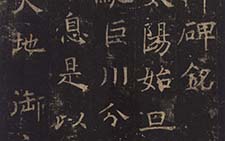 碑銘
太陽始旦
巨川分
息是以
天地御